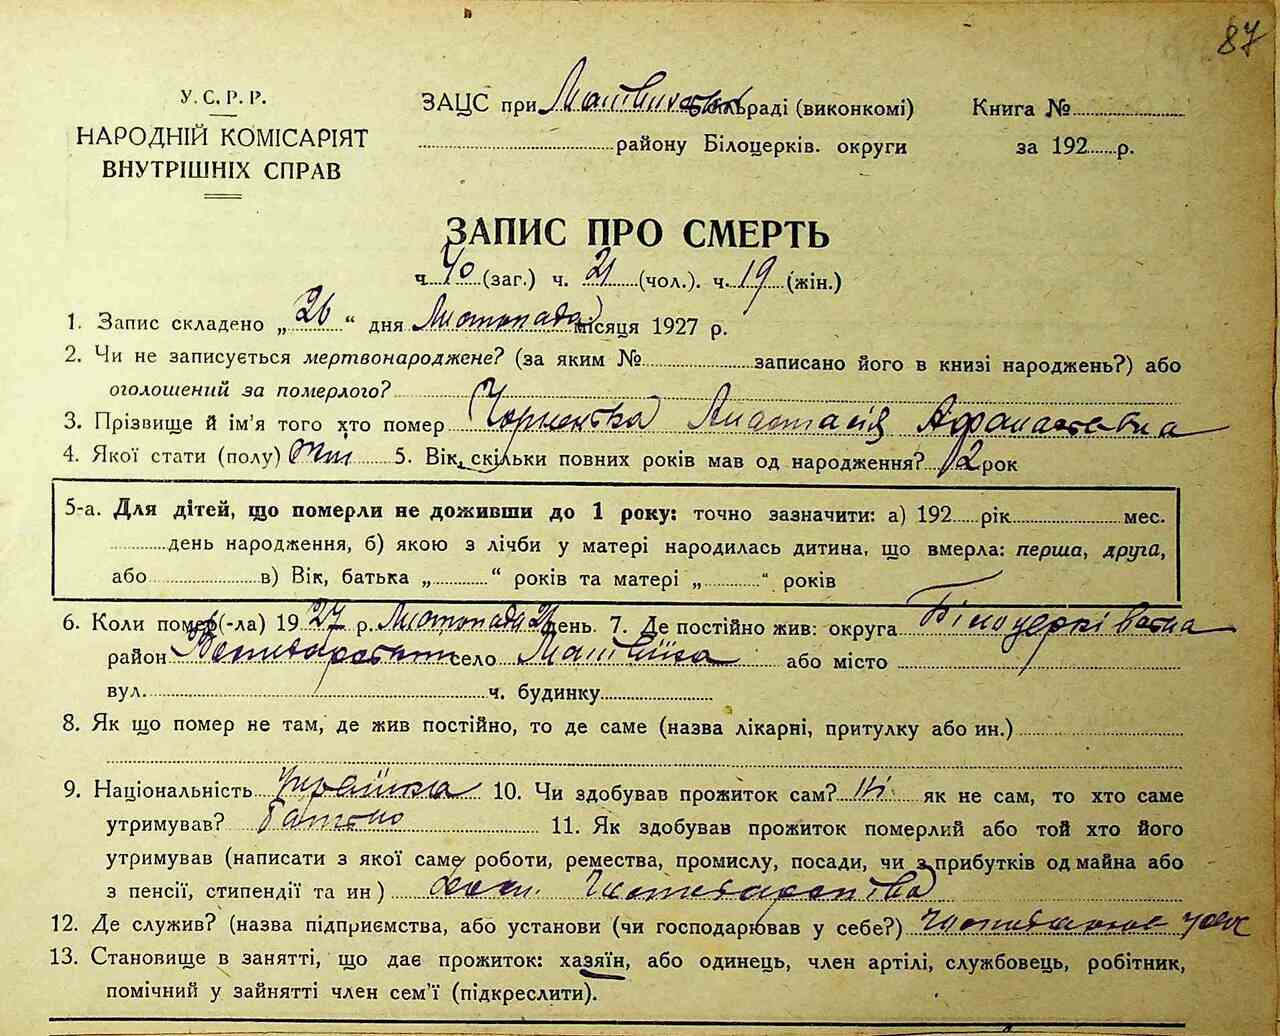 87
У.С.Р.Р.
НАРОДНІЙ КОМІСАРІЯТ
ВНУТРІШНІХ СПРАВ
ЗАЦС при сільраді (виконкомі)
району Білоцерків. округи
Книга №
за 192 р.
ЗАПИС ПРО СМЕРТЬ
ч. 40 (заг.) ч. 21 (чол.). ч. 19 (жін.)
1. Запис складено „26“ дня Листопада місяця 1927 р.
2. Чи не записується мертвонароджене? (за яким № записано його в книзі народжень?) або
оголошений за померлого?
3. Прізвище й ім'я того хто помер Анастасія Афанасієвна
4. Якої стати (полу) 5. Вік, скільки повних років мав од народження? 2 рок
5-а. Для дітей, що померли не доживши до 1 року: точно зазначити: а) 192 рік мес.
день народження, б) якою з лічби у матері народилась дитина, що вмерла: перша, друга,
або в) Вік, батька „ “ років та матері „ “ років
6. Коли помер (-ла) 1927 р. Листопада день. 7. Де постійно жив: округа Білоцерківська
район село Матвіїха або місто
вул. ч. будинку
8. Як що помер не там, де жив постійно, то де саме (назва лікарні, притулку або ин.)
9. Національність Українка 10. Чи здобував прожиток сам? Ні як не сам, то хто саме
утримував? Батько 11. Як здобував прожиток померлий або той хто його
утримував (написати з якої саме роботи, ремества, промислу, посади, чи з прибутків од майна або
з пенсії, стипендії та ин)
12. Де служив? (назва підприємства, або установи (чи господарював у себе?)
13. Становище в занятті, що дає прожиток: хазяїн, або одинець, член артілі, службовець, робітник,
помічний у зайнятті член сем'ї (підкреслити).